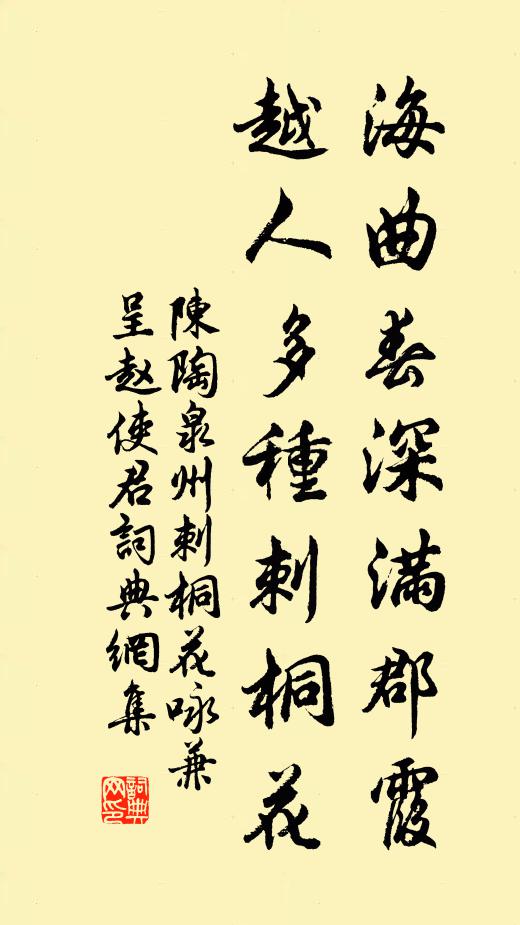 海曲春深滿郡霞
越人多種刺桐花
陳陶泉州刺桐花咏兼
呈赵使君詞典網集
詞典网印